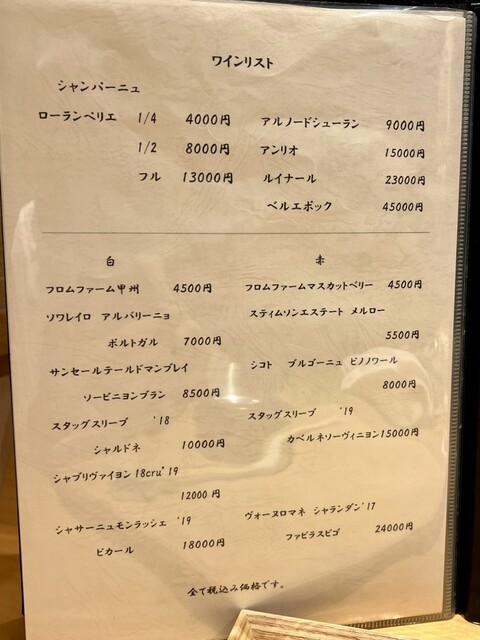 ワインリスト
シャンパーニュ
ローランペリエ 1/4 4000円
1/2 8000円
フル 13000円
アルノードシューラン 9000円
アンリオ 15000円
ルイナール 23000円
ベルエポック 45000円
白
フロムファーム甲州 4500円
ソワレイロ アルバリーニョ
ポルトガル 7000円
サンセールテールドマンブレイ
ソービニヨンブラン 8500円
スタッグスリープ '18
シャルドネ 10000円
シャブリヴァイヨン 18cru' '19
12000円
シャサーニュモンラッシェ '19
ピカール 18000円
赤
フロムファームマスカットベリー 4500円
スティムソンエステート メルロー
5500円
シコト ブルゴーニュ ピノノワール
8000円
スタッグスリープ '19
カベルネソーヴィニヨン15000円
ヴォーヌロマネ シャランダン '17
ファビラスピゴ 24000円
全て税込み価格です。